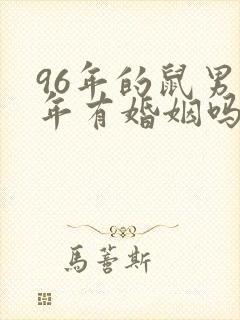 96年的鼠男
年有婚姻吗
馬蓍斯